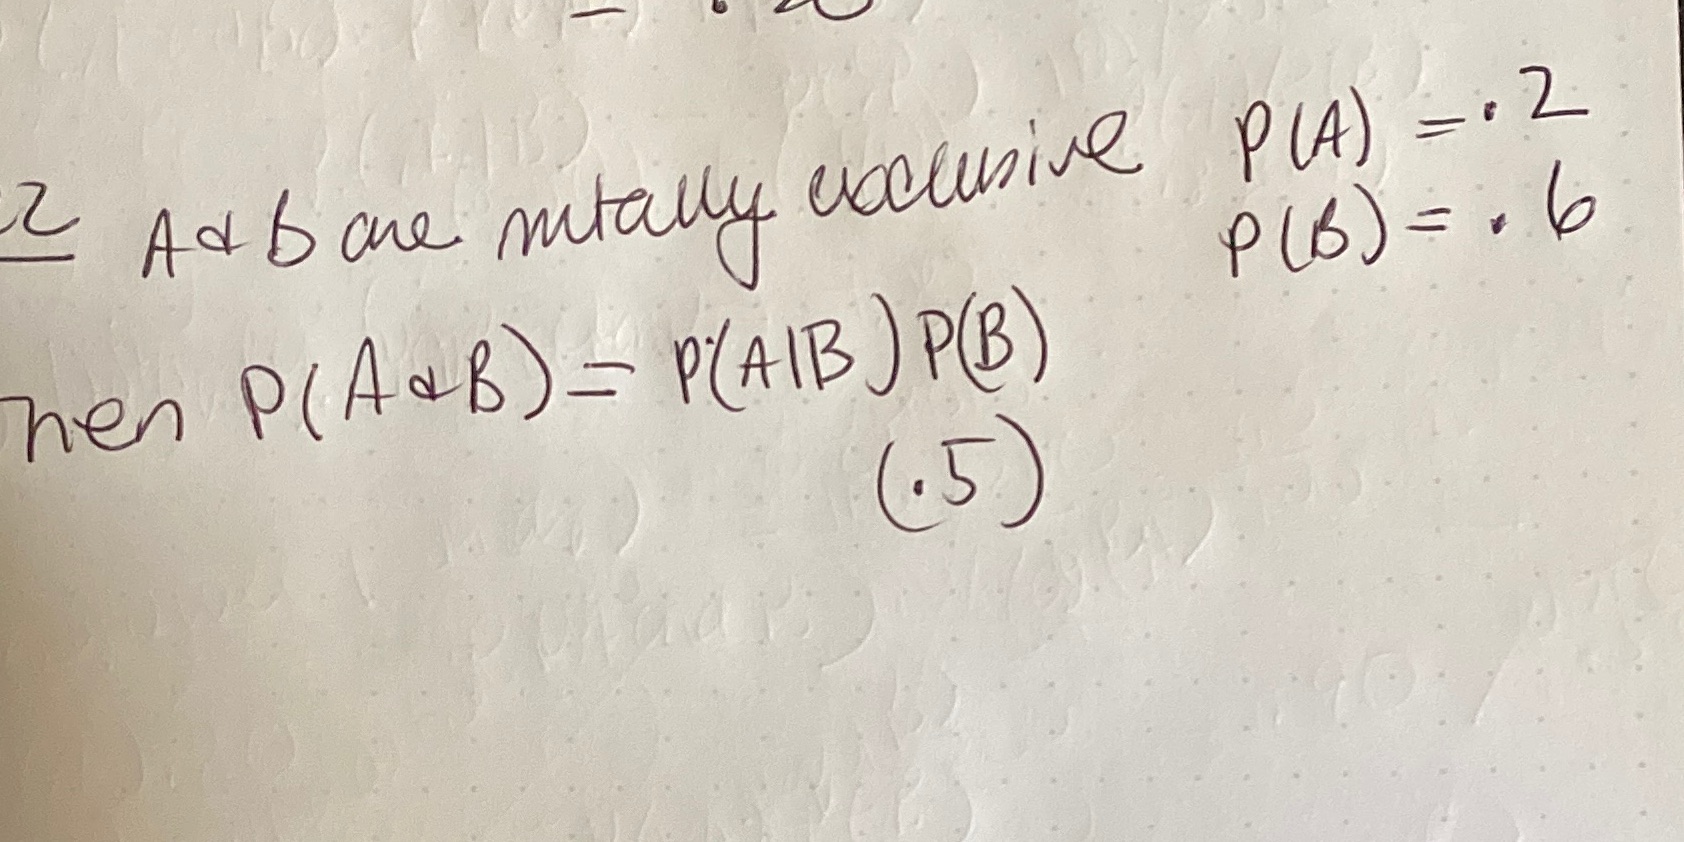 2 A & B are mutally exclusive P(A) = .2
P(B) = .6
Then P(A & B) = P(A|B) P(B)
(.5)